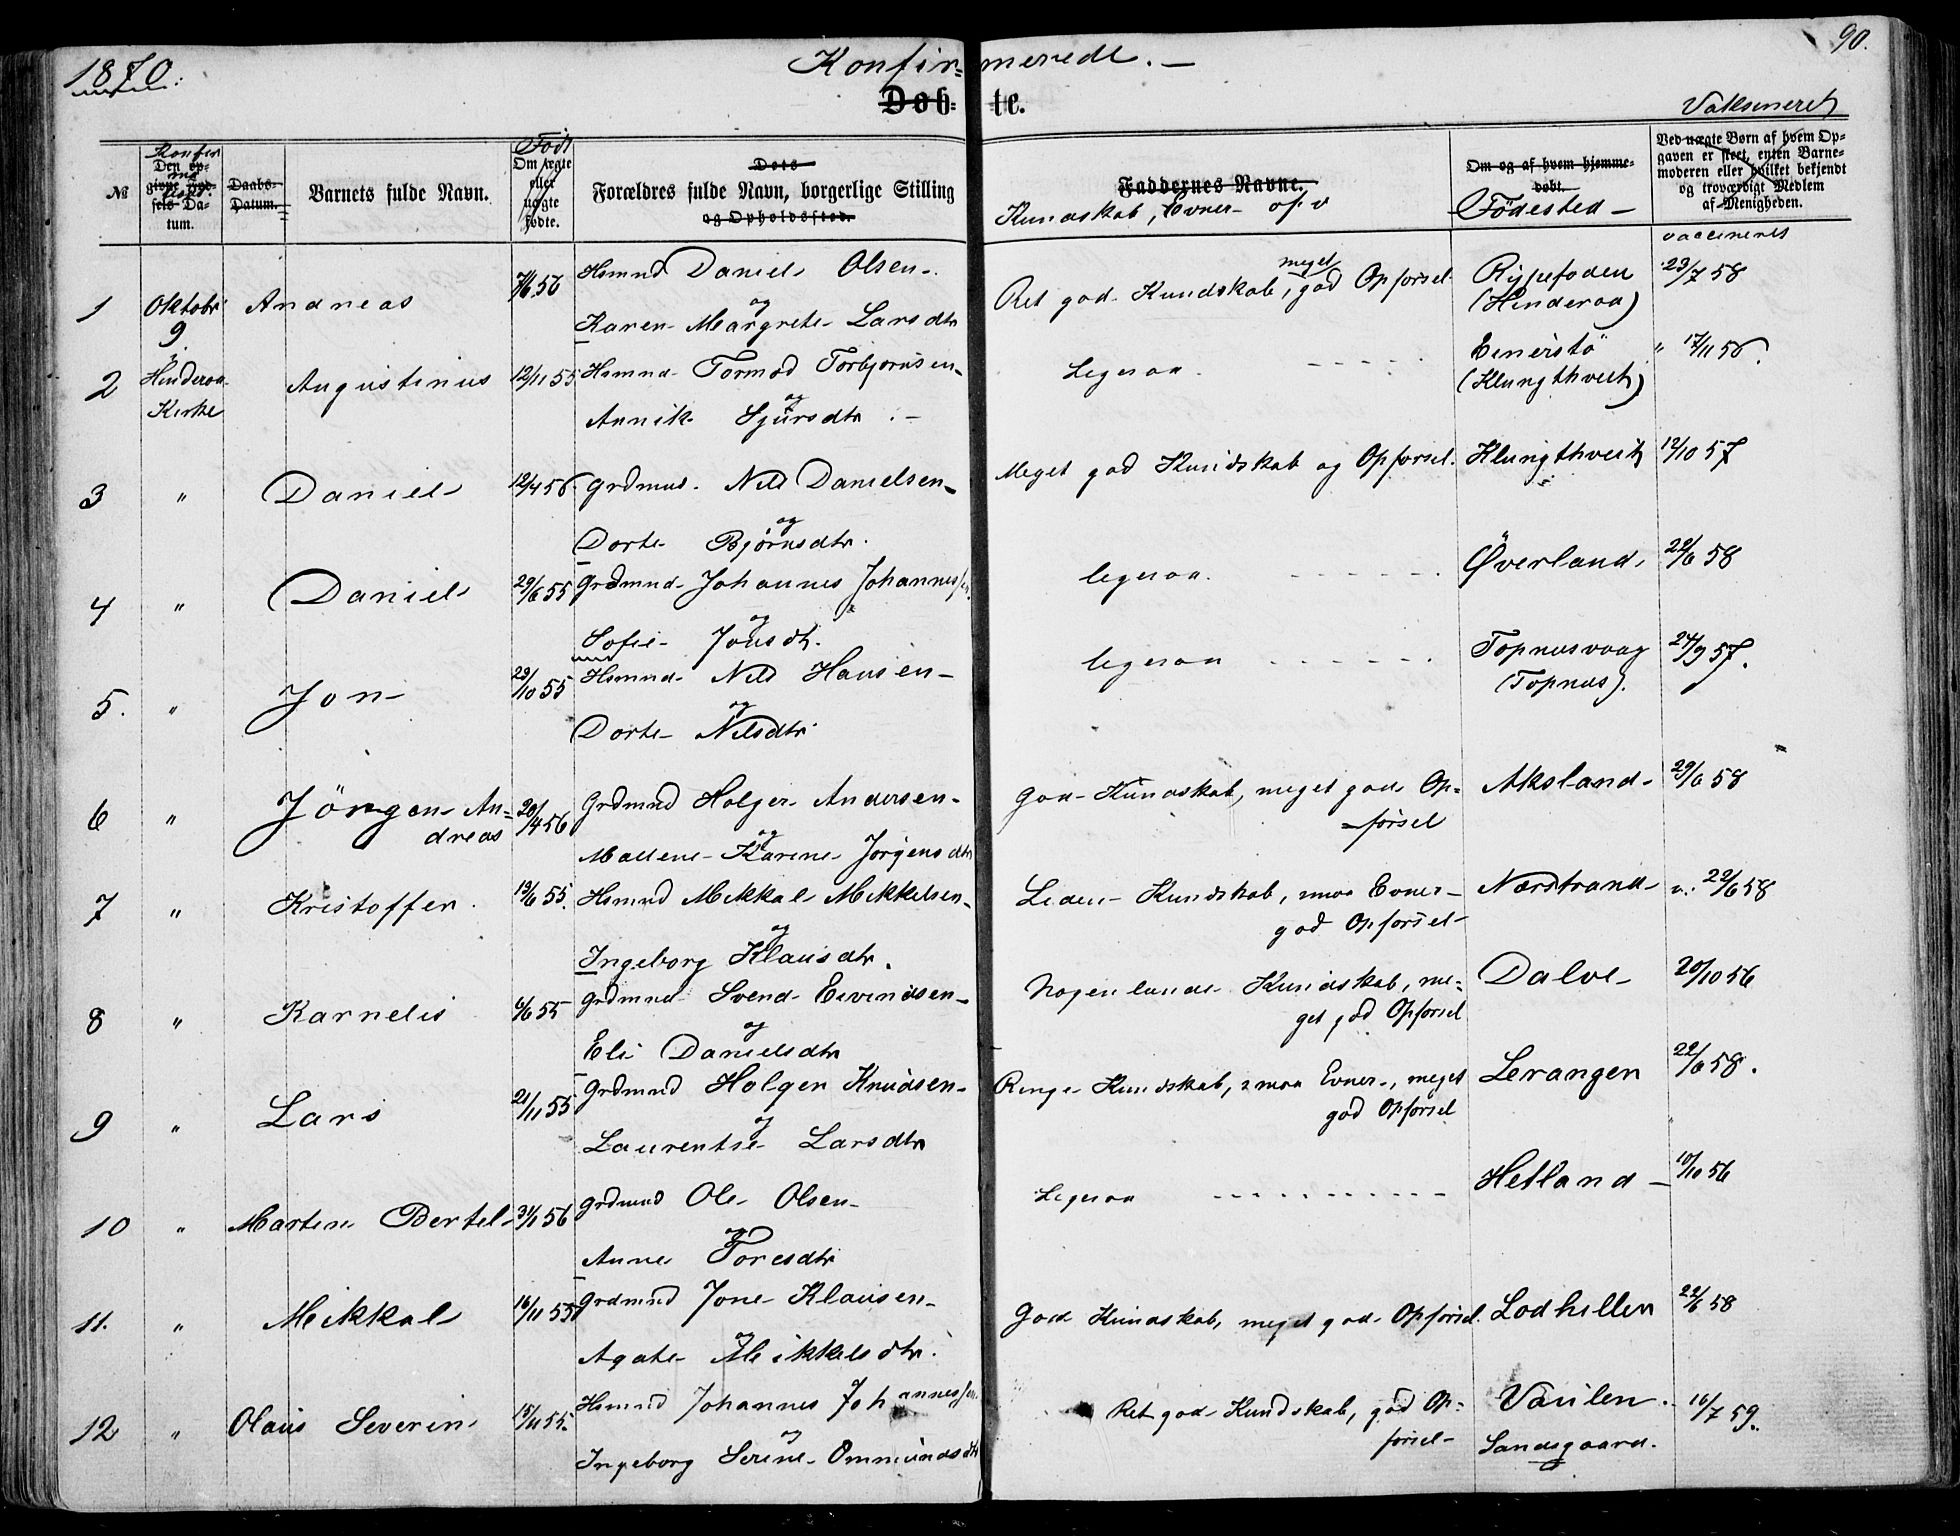 1870.
Konfir=merede. —
90.
Døb=te.
Vaksineret
№
Konfir
ma
Den op-
givne Fød-
sels Da-
tum.
Daabs-
Datum.
Barnets fulde Navn.
Født
Om ægte
eller
uægte
fødte.
Dets
Forældres fulde Navn, borgerlige Stilling
og Opholdssted.
Faddernes Navne.
Kundskab, Evner - o.s.v
Om og af hvem hjemme-
døbt.
Födested —
Ved uægte Børn af hvem Op-
gaven er skeet, enten Barne-
moderen eller hvilket bekjendt
og troværdigt Medlem
af Menigheden.
vaccineret
1 Oktobr 9 Andreas 7/6 56 Hsmnd Daniel Olsen
og
Karen Margrete Larsdtr
Ret god Kundskab, meget god Opførsel
(Hinderaa)
23/7 58
2 Hinderaa Kirke Augustinus 12/11 55 Hsmnd Tormod Torbjørnsen
og
Annik Sjursdtr. —
Ligesaa. - - - - -
Einerstö
(Klungthveit)
" 17/11 56.
3 " Daniel 12/4 56 Grdmnd. Nils Danielsen
og
Dorte Bjørnsdtr.
Meget god Kundskab og Opførsel.
Klungthveit
12/10 57
4 " Daniel 29/6 55 Grdmnd Johannes Johannessen.
og
Sofie Jonsdtr.
ligesaa. - - - - - -
Øverland
22/6 58
5. " Jon 23/10 55 Hsmnd Nils Hansen
og
Dorte Nilsdtr
ligesaa - - - - - -
Topnusvaag
(Topnus).
24/9 57.
6 " Jörgen An=
dreas
20/4 56
Grdmnd Holger Andersen
og
Mallene Karine Jørgensdtr
God Kundskab, meget god Op=
førsel
Aksland
29/6 58
7 " Kristoffer. 13/6 55. Hsmnd Mikkal Mikkelsen
og
Ingeborg Klausdtr.
Liden Kundskab, smaa Evner
god Opførsel
Nærstrand
v: 22/6 58
8 " Karnelis 6/6 55 Grdmnd Svend Eivindsen
og
Eli Danielsdtr
Nogenlunde Kundskab, me=
get god Opførsel
Dalve
20/10 56
9 " Lars 21/11 55 Grdmnd Holger Knudsen
og
Laurentse Larsdtr
Ringe Kundskab, smaa Evner, meget
god Opførsel
Lerangen
22/6 58.
10 " Martin Bertel 31/1 56 Grdmnd Ole Olsen
og
Anne Toresdtr
Ligesaa - - - - - - - - - - -
Hetland
10/10 56
11. " Mikkal 16/11 55 Grdmnd Jone Klausen
og
Agate Mikkelsdtr.
God Kundskab, meget god Opførsel.
Lodhellen
22/6 58
12 " Olaus Severin 15/11 55. Hsmnd Johannes Johannessen
og
Ingeborg Serine Ommundsdtr
Ret god Kundskab, god Op=
førsel
Vaulen.
Sandsgaard.
16/7 59.